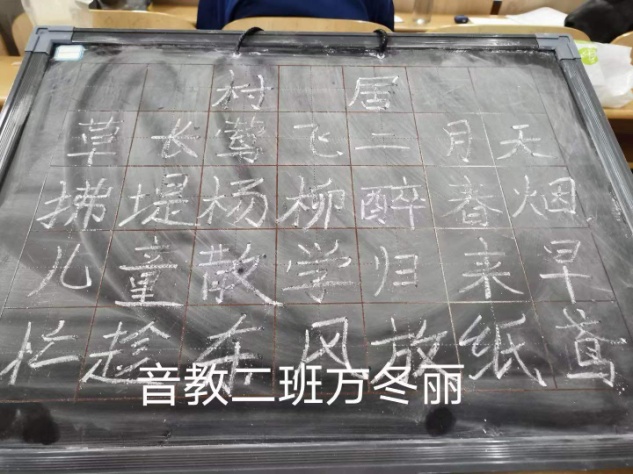 村居
草长莺飞二月天
拂堤杨柳醉春烟
儿童散学归来早
忙趁东风放纸鸢
音教二班万冬丽